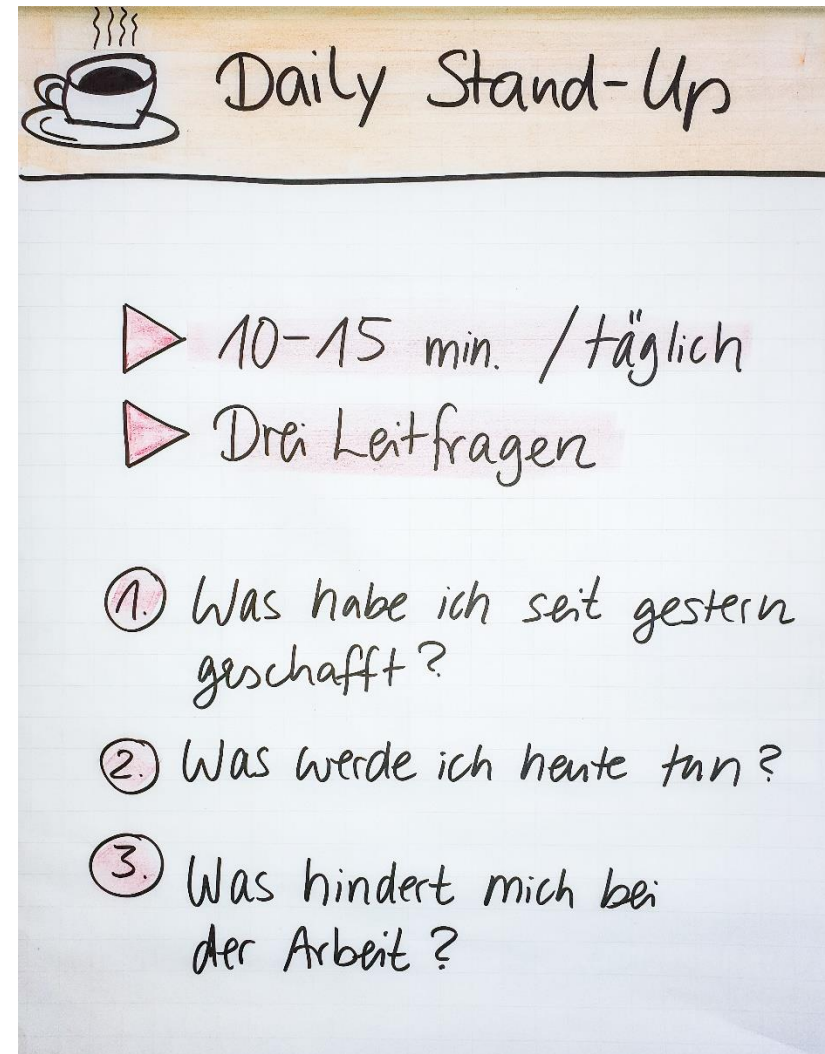 Daily Stand-Up
10-15 min. / täglich
Drei Leitfragen
1. Was habe ich seit gestern
geschafft?
2. Was werde ich heute tun?
3. Was hindert mich bei
der Arbeit?